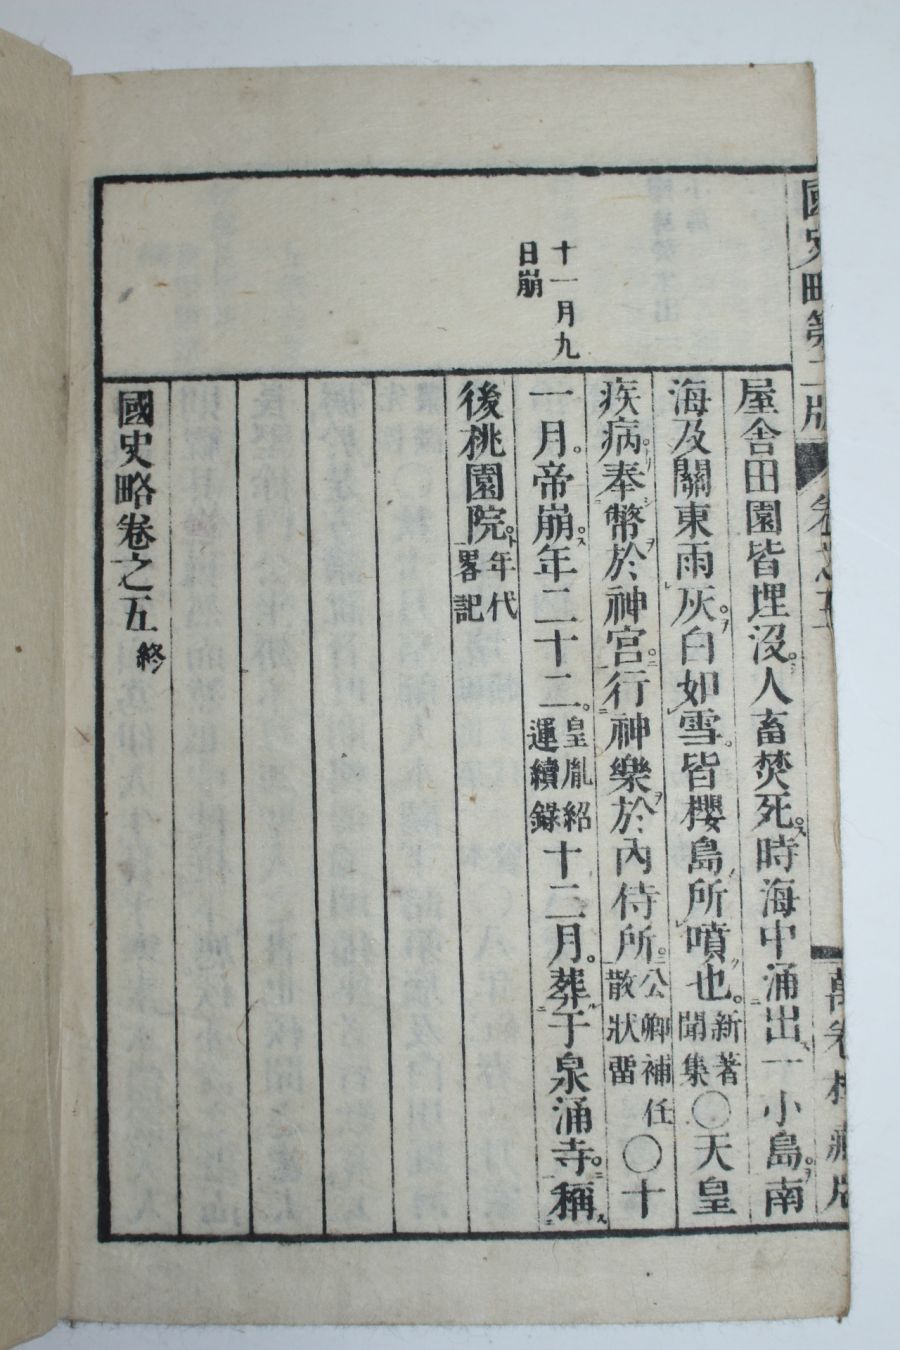 國史略第二版
卷之五
萬卷樓藏版
十一月九
日崩
屋舍田園皆埋沒人畜焚死時海中涌出一小島南
海及關東雨灰白如雪皆櫻島所噴也新著聞集〇天皇
疾病奉幣於神宮行神樂於內侍所公卿補任散狀畱〇十
一月帝崩年二十二皇胤紹運續錄十二月葬于泉涌寺稱
後桃園院年代畧記
國史略卷之五終